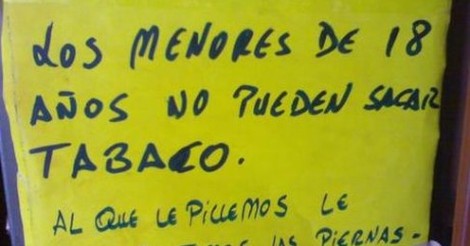 LOS MENORES DE 18
AÑOS NO PUEDEN SACAR
TABACO.
AL QUE LE PILLEMOS LE
LAS PIERNAS-